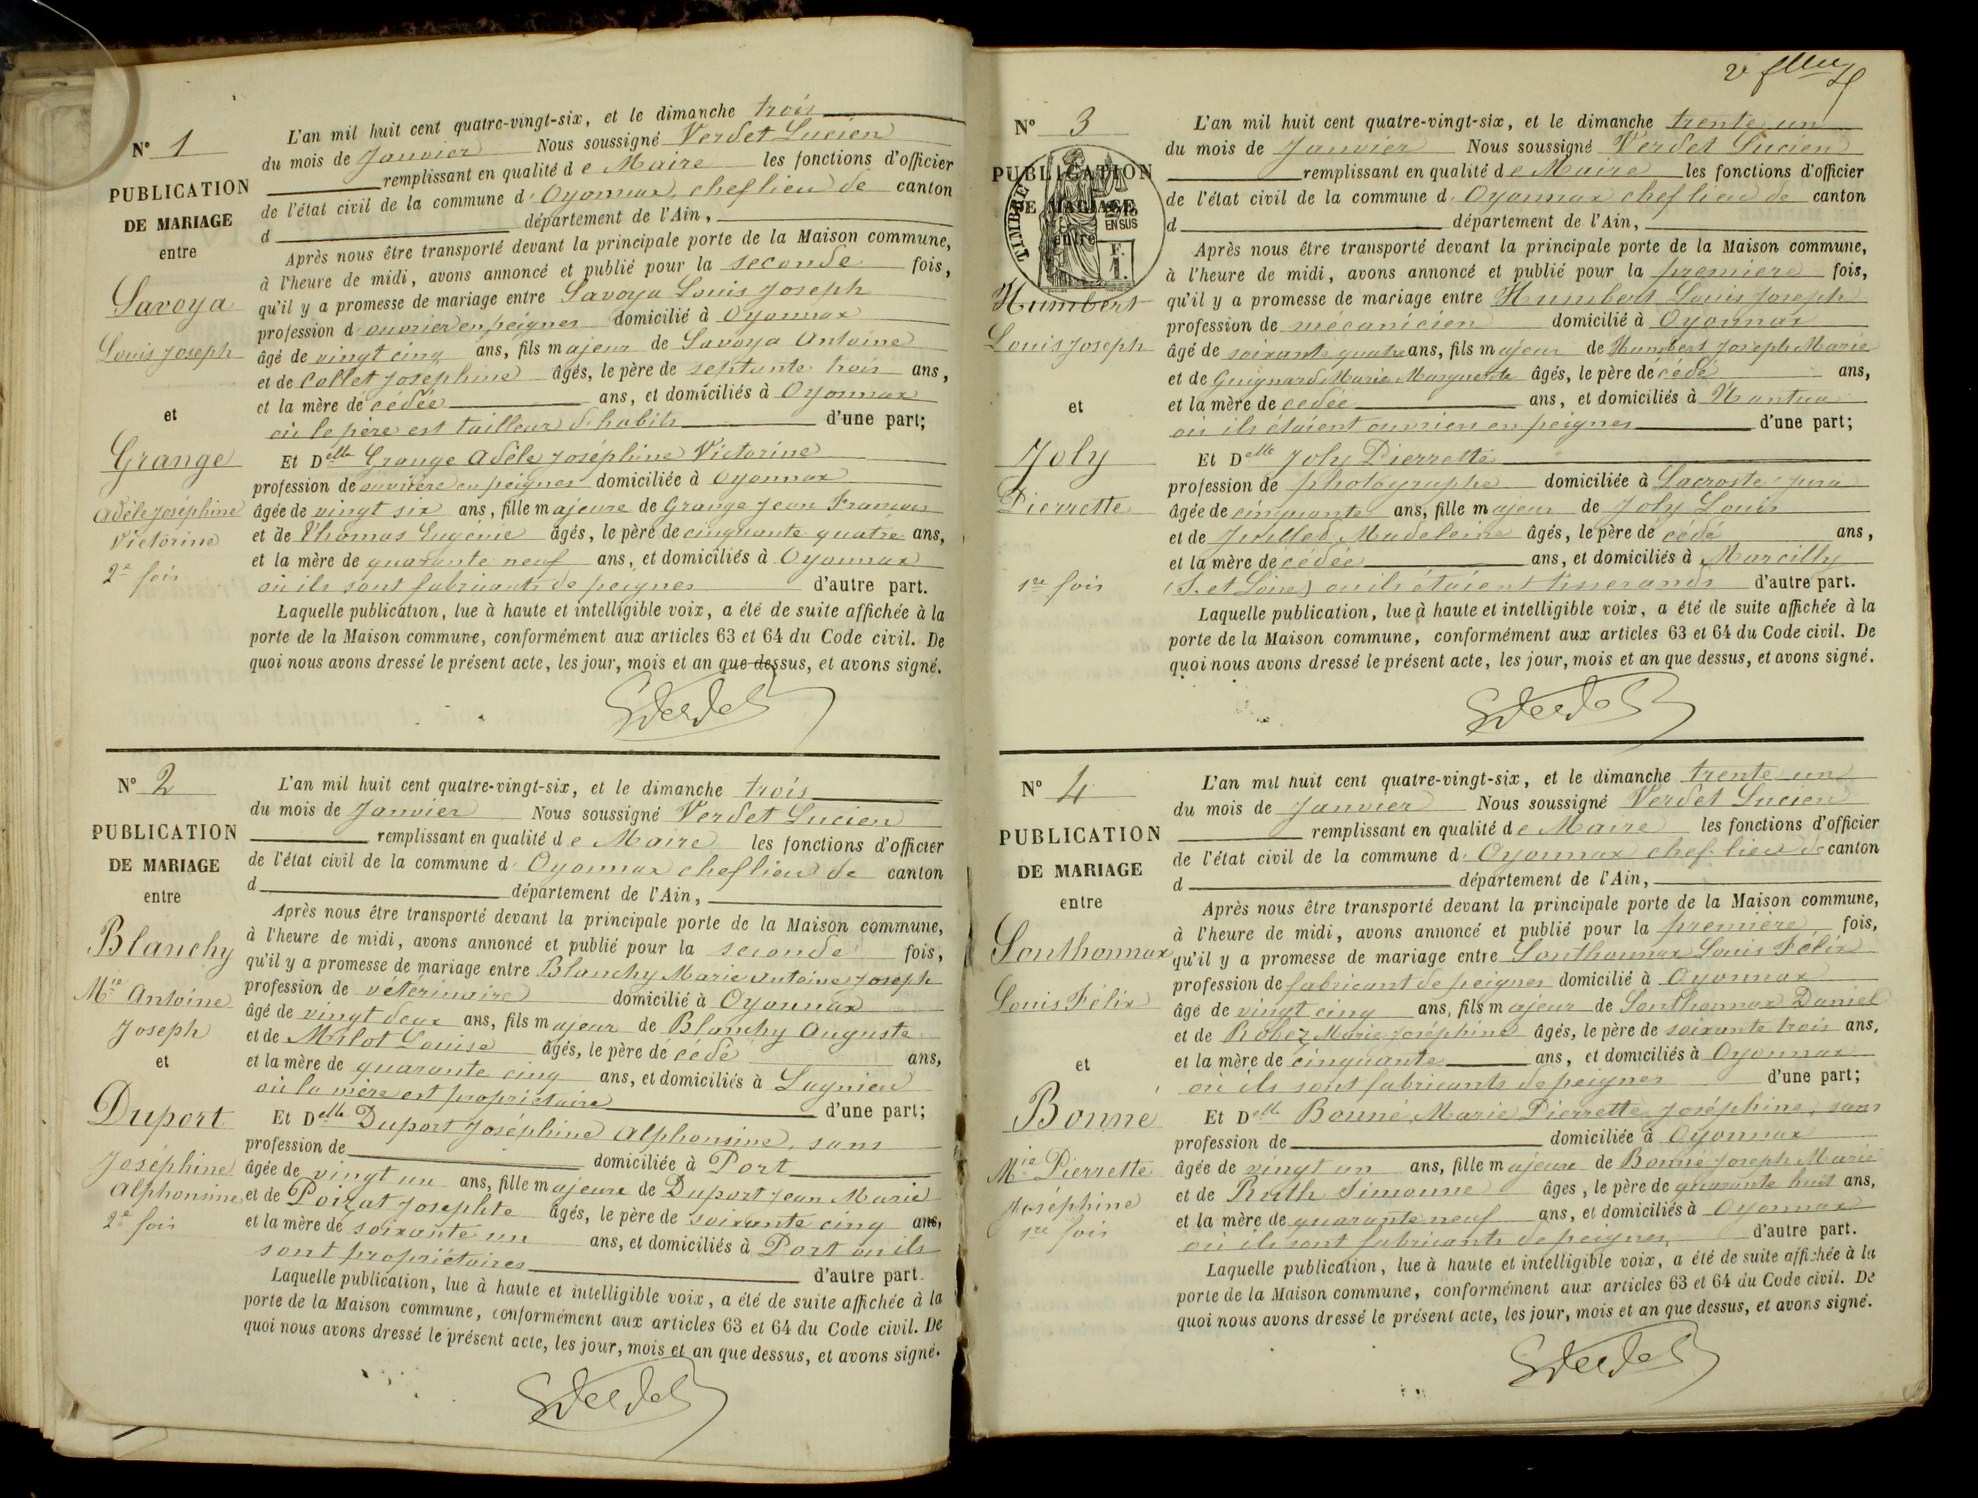 N° 1
PUBLICATION
DE MARIAGE
entre
Savoya
Louis Joseph
et
Grange
Adèle Joséphine
Victorine
2e fois
L'an mil huit cent quatre-vingt-six, et le dimanche trois
du mois de Janvier Nous soussigné Verdet Lucien
remplissant en qualité de Maire les fonctions d'officier
de l'état civil de la commune d'Oyonnax, chef lieu de canton
d département de l'Ain,
Après nous être transporté devant la principale porte de la Maison commune,
à l'heure de midi, avons annoncé et publié pour la seconde fois,
qu'il y a promesse de mariage entre Savoya Louis Joseph
profession d'ouvrier en peignes domicilié à Oyonnax
âgé de vingt cinq ans, fils majeur de Savoya Antoine
et de Collet Josephine âgés, le père de septante trois ans,
et la mère décédée ans, et domiciliés à Oyonnax
où le père est tailleur d'habits d'une part;
Et Delle Grange Adèle Joséphine Victorine
profession de ouvrière en peignes domiciliée à Oyonnax
âgée de vingt six ans, fille majeure de Grange Jean François
et de Thomas Eugénie âgés, le père de cinquante quatre ans,
et la mère de quarante neuf ans, et domiciliés à Oyonnax
où ils sont fabricants de peignes d'autre part.
Laquelle publication, lue à haute et intelligible voix, a été de suite affichée à la
porte de la Maison commune, conformément aux articles 63 et 64 du Code civil. De
quoi nous avons dressé le présent acte, les jour, mois et an que dessus, et avons signé.
LVerdet
N° 2
PUBLICATION
DE MARIAGE
entre
Blanchy
Mie Antoine
Joseph
et
Duport
Joséphine
Alphonsine
2e fois
L'an mil huit cent quatre-vingt-six, et le dimanche trois
du mois de Janvier Nous soussigné Verdet Lucien
remplissant en qualité de Maire les fonctions d'officier
de l'état civil de la commune d'Oyonnax chef lieu de canton
d département de l'Ain,
Après nous être transporté devant la principale porte de la Maison commune,
à l'heure de midi, avons annoncé et publié pour la seconde fois,
qu'il y a promesse de mariage entre Blanchy Marie Antoine Joseph
profession de véterinaire domicilié à Oyonnax
âgé de vingt deux ans, fils majeur de Blanchy Auguste
et de Milot Louise âgés, le père décédé ans,
et la mère de quarante cinq ans, et domiciliés à Lagnieu
où la mère est propriétaire d'une part;
Et Delle Duport Joséphine Alphonsine, sans
profession de domiciliée à Port
âgée de vingt un ans, fille majeure de Duport Jean Marie
et de Poizat Josephte âgés, le père de soixante cinq ans,
et la mère de soixante un ans, et domiciliés à Port où ils
sont propriétaires d'autre part.
Laquelle publication, lue à haute et intelligible voix, a été de suite affichée à la
porte de la Maison commune, conformément aux articles 63 et 64 du Code civil. De
quoi nous avons dressé le présent acte, les jour, mois et an que dessus, et avons signé.
LVerdet
N° 3
PUBLICATION
DE MARIAGE
entre
TIMBRE
EN SUS
F.
1.
Humbert
Louis Joseph
et
Joly
Pierrette
1re fois
L'an mil huit cent quatre-vingt-six, et le dimanche trente un
du mois de Janvier Nous soussigné Verdet Lucien
remplissant en qualité de Maire les fonctions d'officier
de l'état civil de la commune d'Oyonnax chef lieu de canton
d département de l'Ain,
Après nous être transporté devant la principale porte de la Maison commune,
à l'heure de midi, avons annoncé et publié pour la première fois,
qu'il y a promesse de mariage entre Humbert Louis Joseph
profession de mécanicien domicilié à Oyonnax
âgé de soixante quatre ans, fils majeur de Humbert Joseph Marie
et de Guignard Marie Marguerite âgés, le père décédé ans,
et la mère décédée ans, et domiciliés à Nantua
où ils étaient ouvriers en peignes d'une part;
Et Delle Joly Pierrette
profession de photographe domiciliée à Lacroste Jura
âgée de cinquante ans, fille majeur de Joly Louis
et de Juilled Madeleine âgés, le père décédé ans,
et la mère décédée ans, et domiciliés à Marcilly
(S. et Loire) où ils étaient tisserands d'autre part.
Laquelle publication, lue à haute et intelligible voix, a été de suite affichée à la
porte de la Maison commune, conformément aux articles 63 et 64 du Code civil. De
quoi nous avons dressé le présent acte, les jour, mois et an que dessus, et avons signé.
LVerdet
N° 4
PUBLICATION
DE MARIAGE
entre
Sonthonnax
Louis Félix
et
Bonne
Mie Pierrette
Joséphine
1re fois
L'an mil huit cent quatre-vingt-six, et le dimanche trente un
du mois de Janvier Nous soussigné Verdet Lucien
remplissant en qualité de Maire les fonctions d'officier
de l'état civil de la commune d'Oyonnax chef lieu de canton
d département de l'Ain,
Après nous être transporté devant la principale porte de la Maison commune,
à l'heure de midi, avons annoncé et publié pour la première fois,
qu'il y a promesse de mariage entre Sonthonnax Louis Félix
profession de fabricant de peignes domicilié à Oyonnax
âgé de vingt cinq ans, fils majeur de Sonthonnax Daniel
et de Robez Marie Joséphine âgés, le père de soixante trois ans,
et la mère de cinquante ans, et domiciliés à Oyonnax
où ils sont fabricants de peignes d'une part;
Et Delle Bonne Marie Pierrette Joséphine, sans
profession de domiciliée à Oyonnax
âgée de vingt un ans, fille majeure de Bonne Joseph Marie
et de Ruth Simonne âgés, le père de quarante huit ans,
et la mère de quarante neuf ans, et domiciliés à Oyonnax
où ils sont fabricants de peignes d'autre part.
Laquelle publication, lue à haute et intelligible voix, a été de suite affichée à la
porte de la Maison commune, conformément aux articles 63 et 64 du Code civil. De
quoi nous avons dressé le présent acte, les jour, mois et an que dessus, et avons signé.
LVerdet